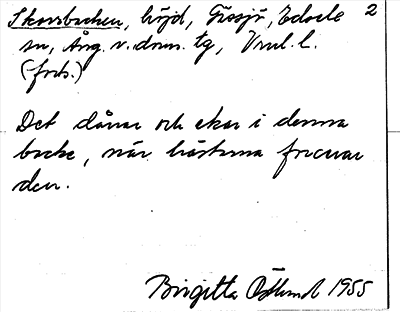 Skorsbacken, höjd, Gåsjö, Edsele 2
sn, Ång. v. dom. tg, Vml. l.
(forts.)
Det dånar och ekar i denna
backe, när hästarna
den.
Birgitta Östlund 1955